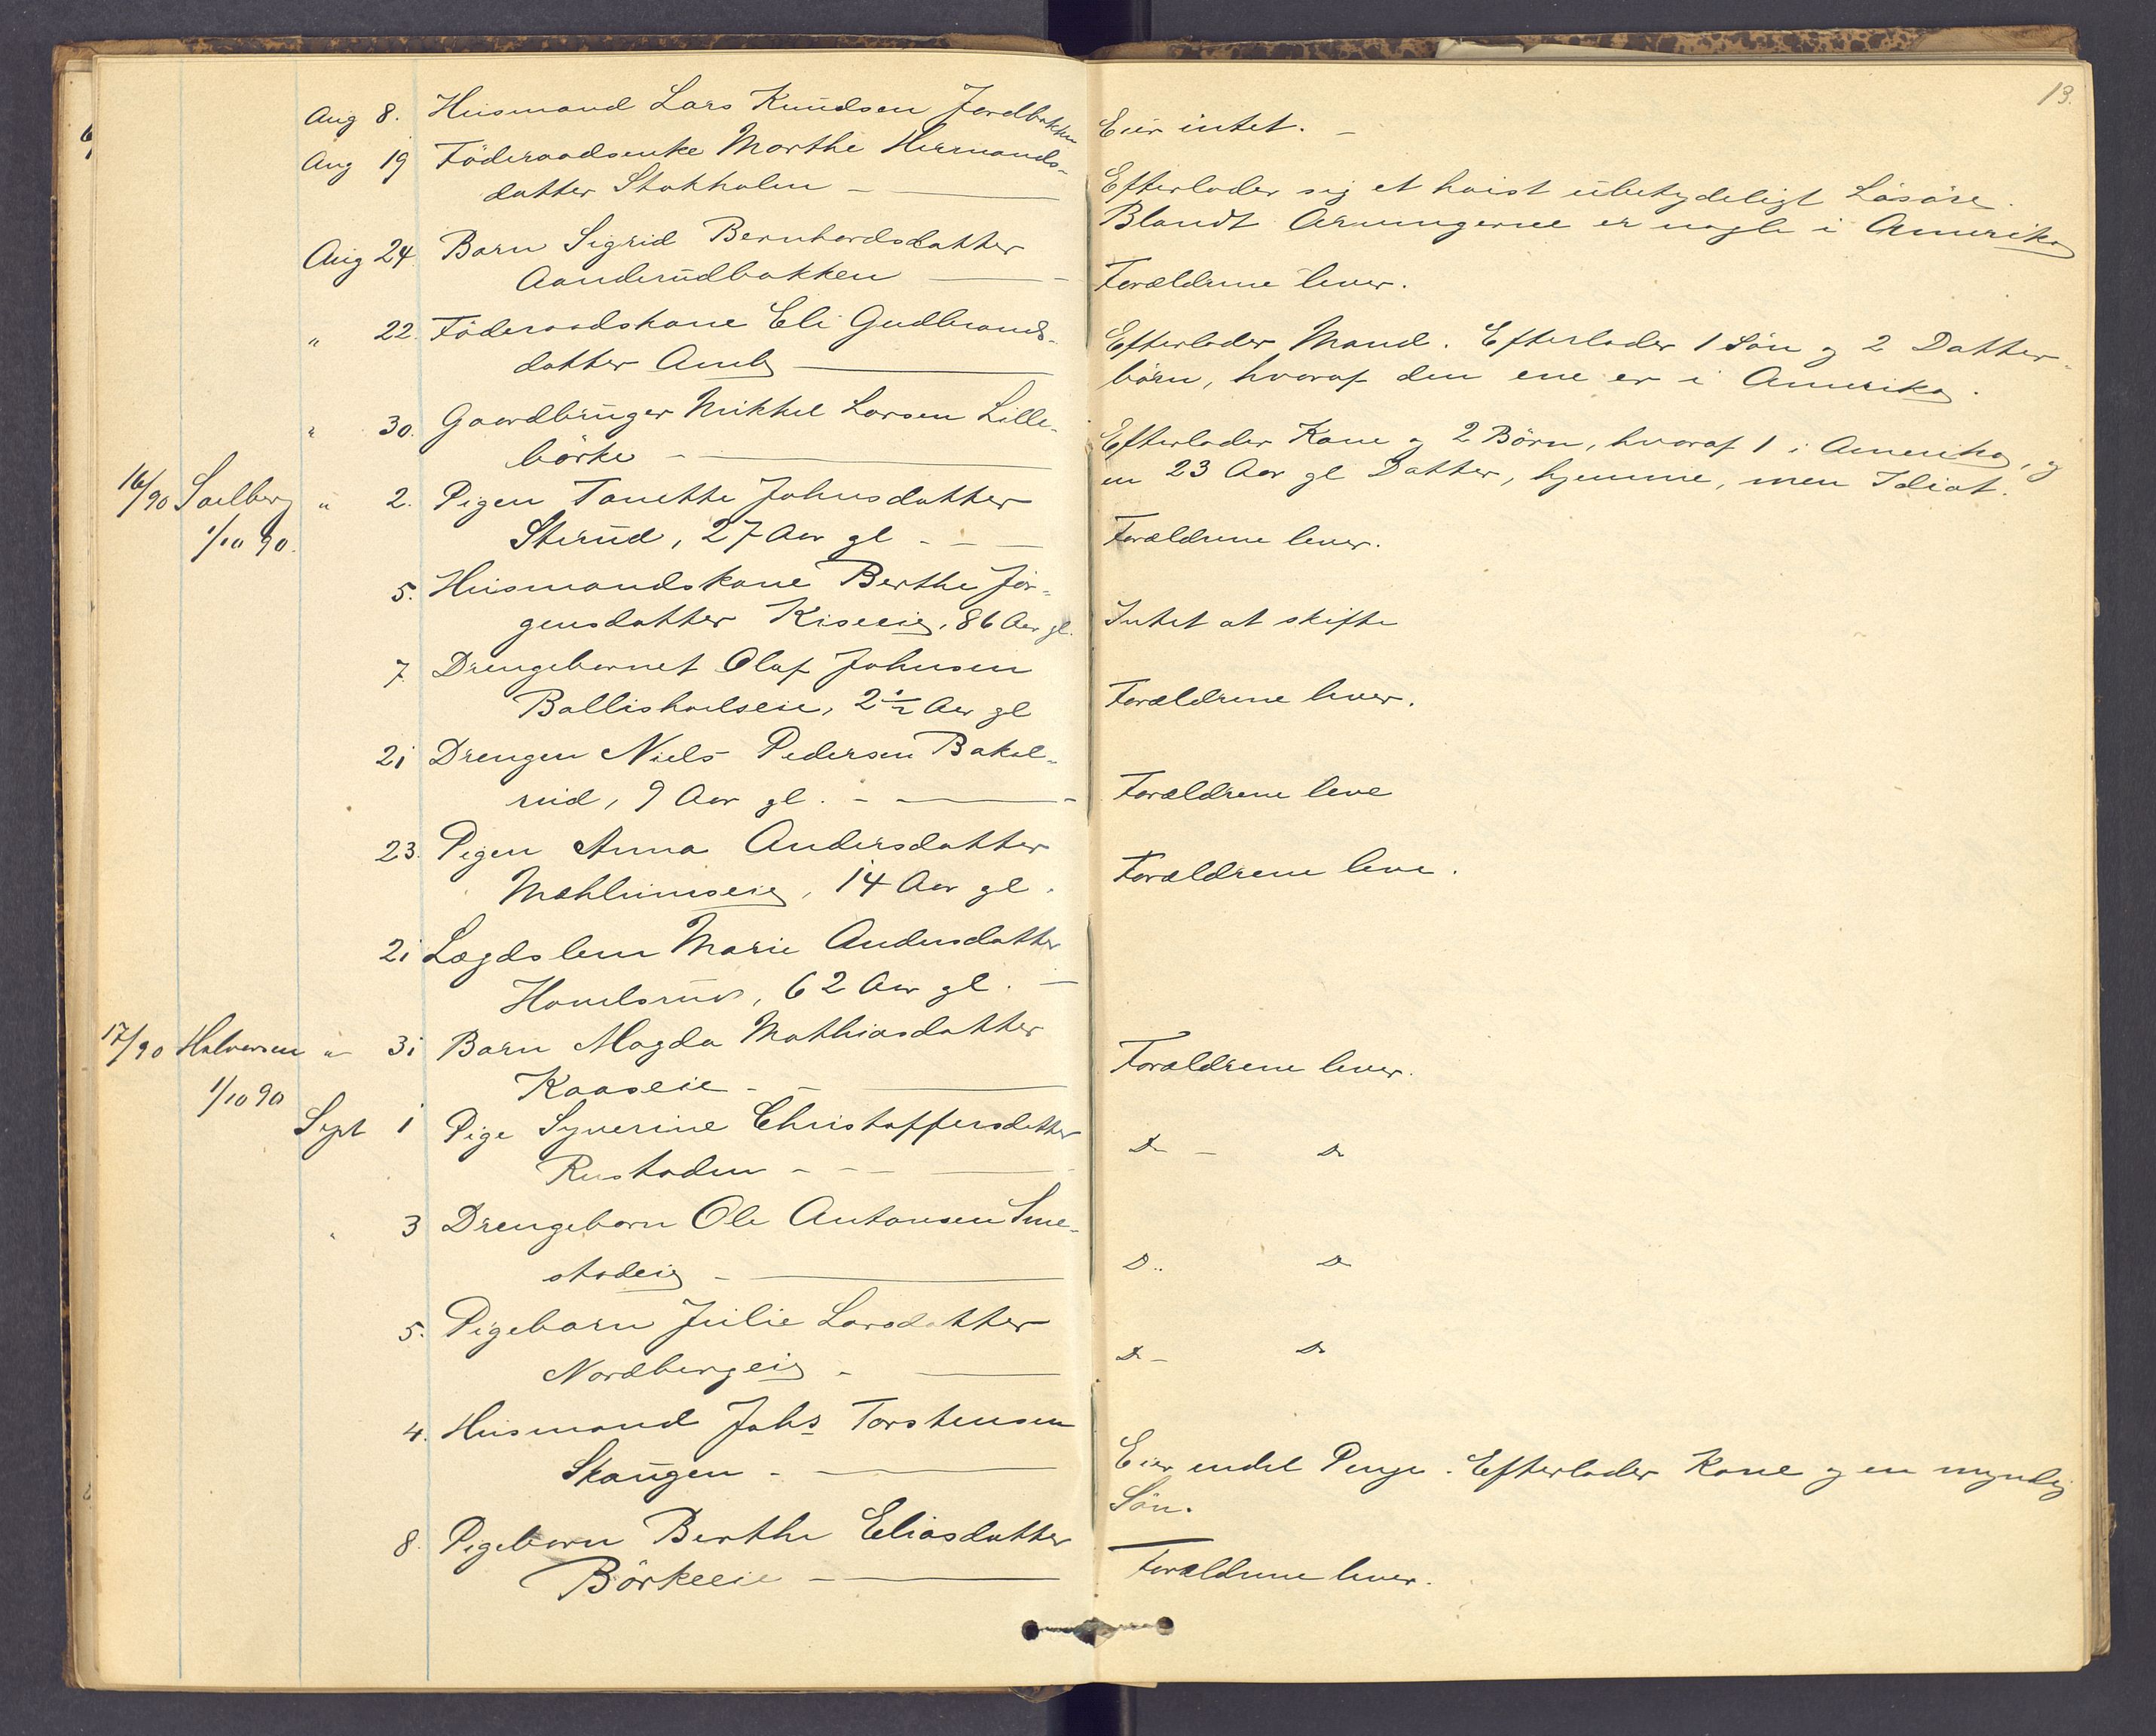 13.
Aug 8. Huusmand Lars Knudsen Jordbakken
Eier intet. –
Aug 19 Föderaadsenke Marthe Hermands-
datter Stokholm –
Efterlader sig et høist ubetydeligt Løsøre.
Blandt Arvingerne er nogle i Amerika
Aug 24. Barn Sigrid Bernhardsdatter
Aanderudbakken
Forældrene lever.
" 22. Föderaadskone Eli Gudbrands-
datter Amb
Efterlader Mand. Efterlader 1 Sön og 2 Datter-
börn, hvoraf den ene er i Amerika.
" 30. Gaardbruger Mikkel Larsen Lille-
börke –
Efterlader Kone og 2 Börn, hvoraf 1 i Amerika, og
en 23 Aar gl Datter, hjemme, men Idiot.
16/90 Soelberg " 2. Pigen Tonette Johnsdatter
1/10 90. Sterud, 27 Aar gl – –
Forældrene lever.
5. Huusmandskone Berthe Jör-
gensdatter Kiseeie, 86 Aar gl.
Intet at skifte
7. Drengebarnet Olaf Johnsen
Ballishoelseie, 2½ Aar gl
Forældrene lever.
21 Drengen Niels Pedersen Bakel-
rud, 9 Aar gl. –
Forældrene leve
23. Pigen Anna Andersdatter
Mæhlumseie, 14 Aar gl.
Forældrene leve.
21 Lægdslem Marie Andersdatter
Hovelsrud, 62 Aar gl. –
17/90 Halvorsen " 31 Barn Magda Mathiasdatter
1/10 90 Kaaseie – –
Forældrene lever.
Sept 1 Pige Syverine Christoffersdatter
Rustaden – – –
Do – Do
" 3 Drengebarn Ole Antonsen Sme-
stadeie –
Do Do
5. Pigebarn Julie Larsdatter
Nordbergeie –
Do – Do
4. Huusmand Johs Torstensen
Skaugen –
Eier endel Penge. Efterlader Kone og en myndig
Sön.
8. Pigebarn Berthe Eliasdatter
Börkeeie –
Forældrene lever.